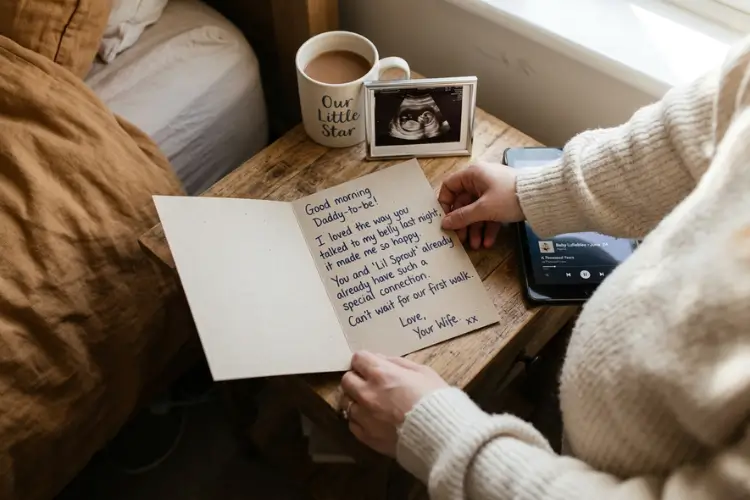 Our
Little
Star
Good morning,
Daddy-to-be!
I loved the way you
talked to my belly last night,
it made me so happy.
You and 'Lil Sprout' already
already have such a
special connection.
Can't wait for our first walk.
Love,
Your Wife xx
Baby Lullabies
A Thousand Years